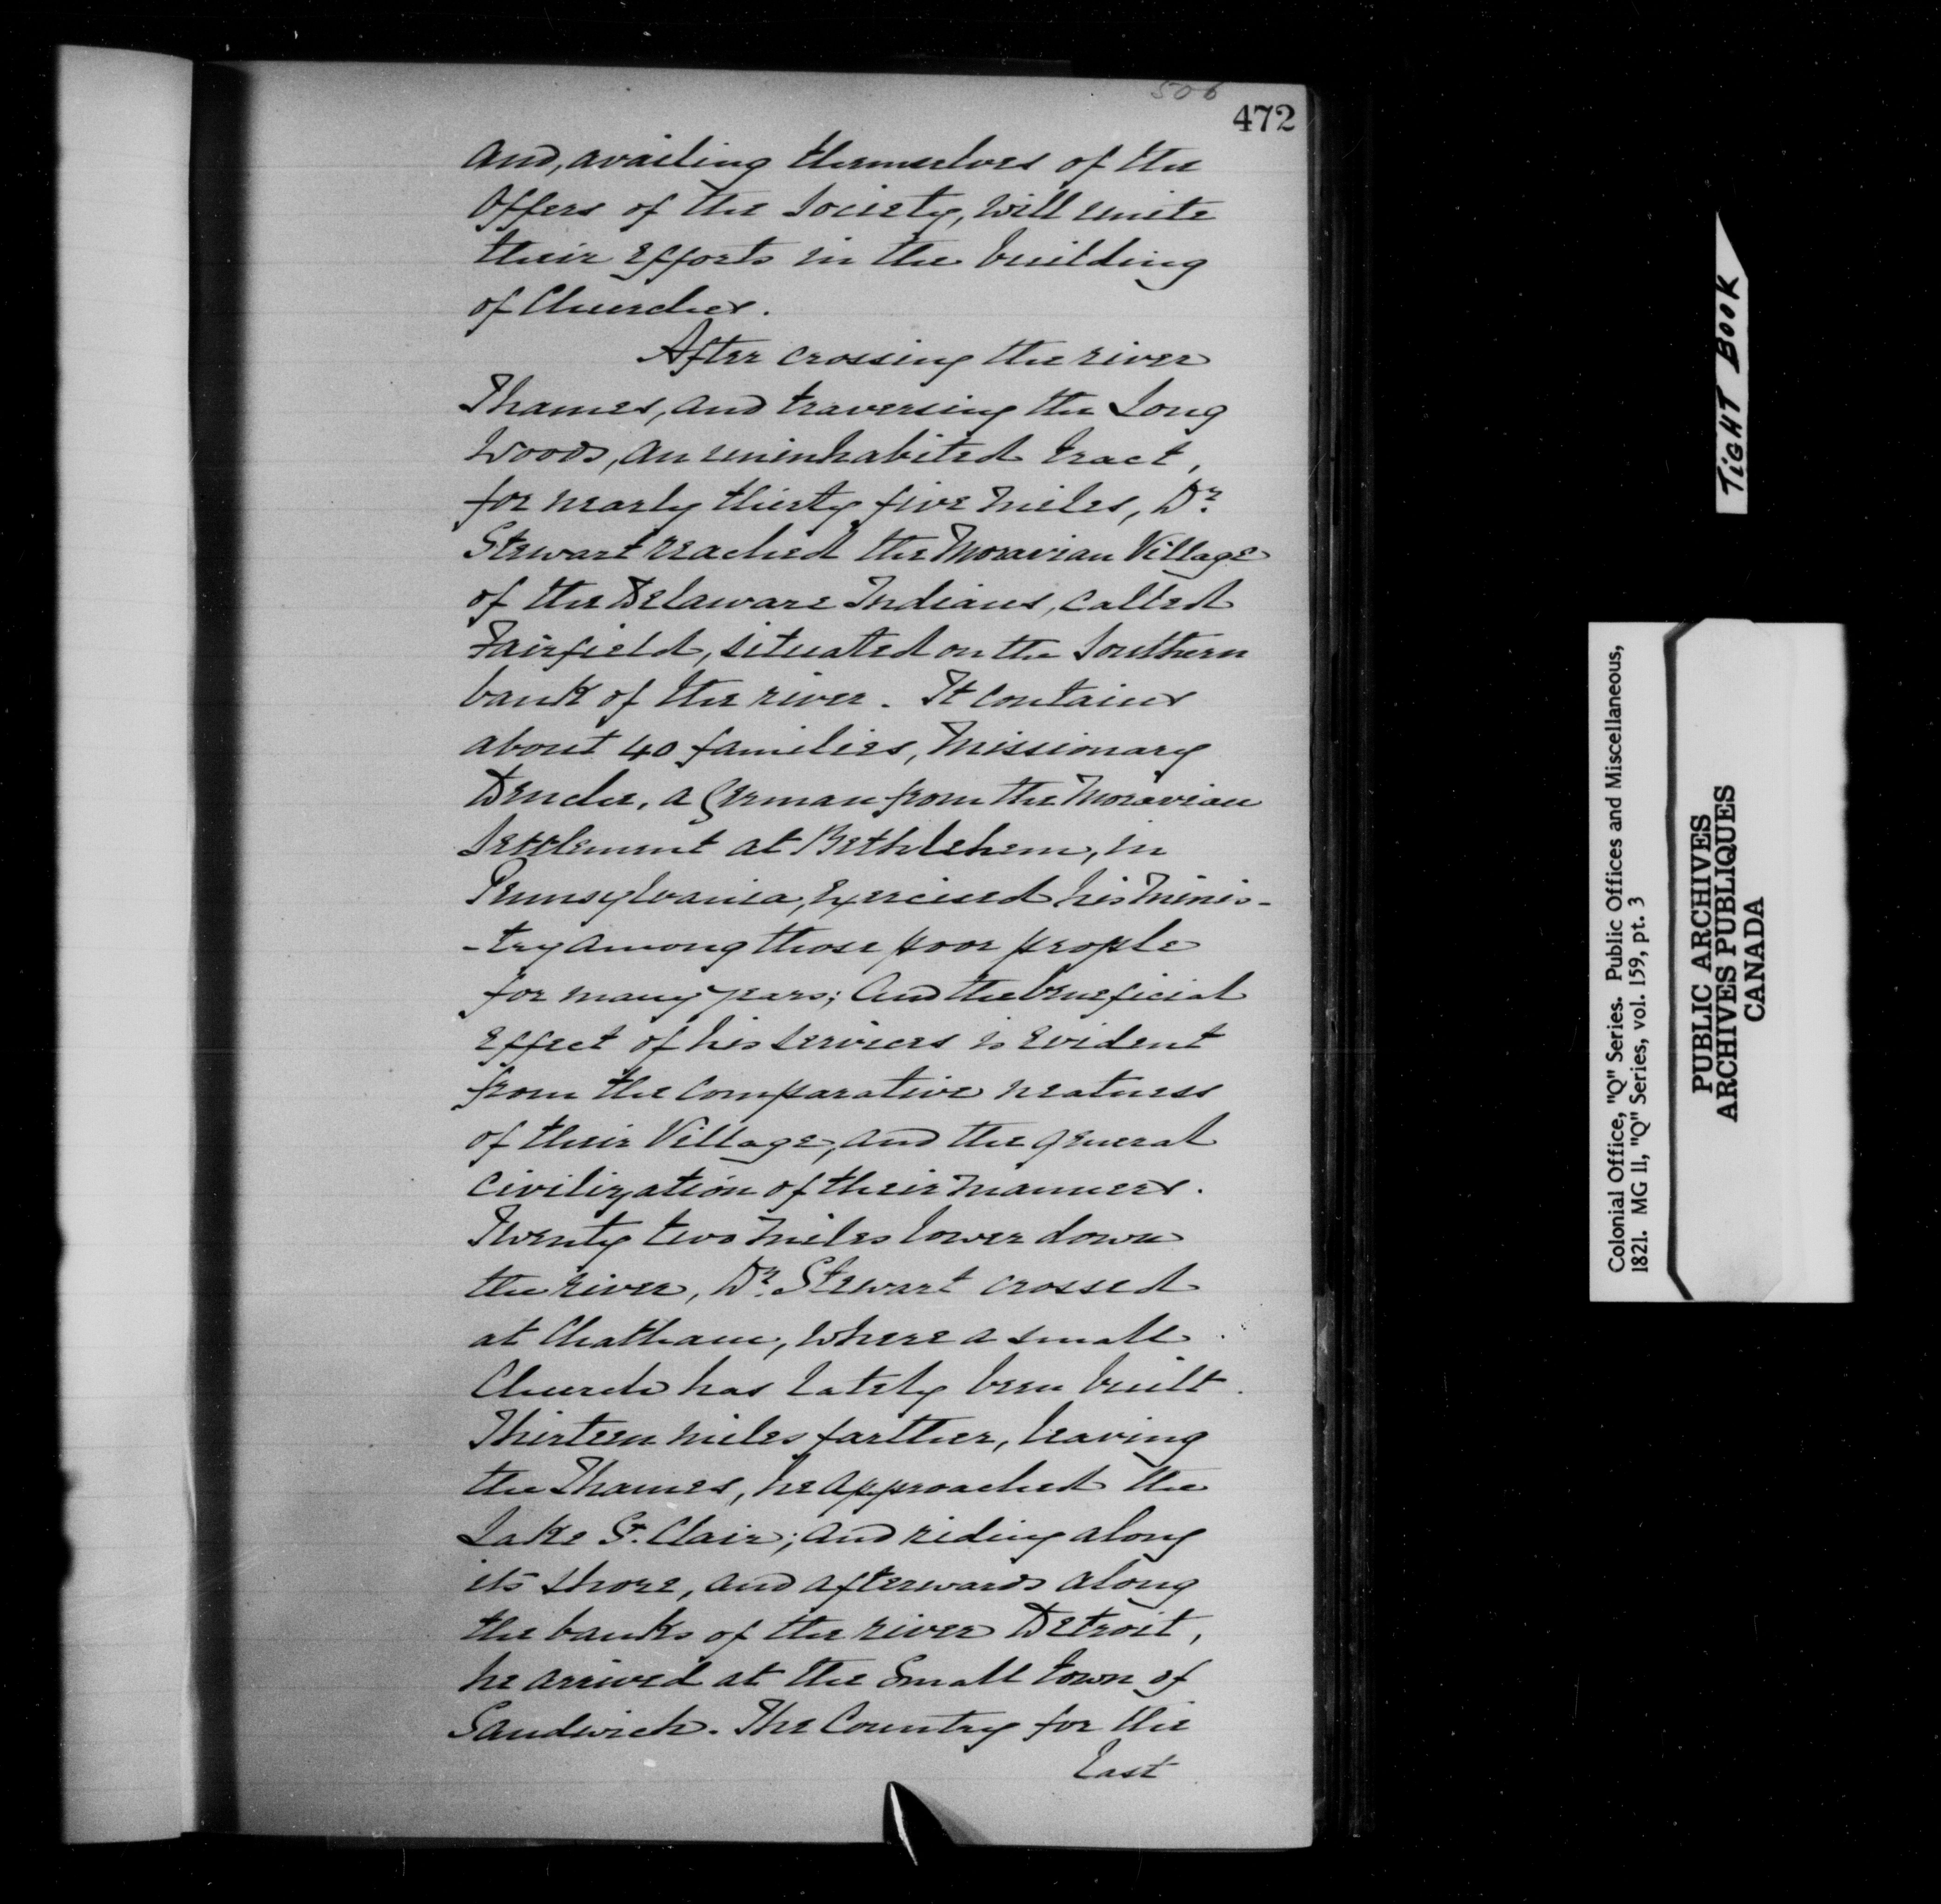 506
472
and, availing themselves of the
Offers of the Society, will unite
their Efforts in the building
of Churches.
After crossing the river
Thames, and traversing the Long
Woods, an uninhabited tract,
for nearly thirty five miles, Dr.
Stewart reached the Moravian Village
of the Delaware Indians, called
Fairfield, situated on the Southern
bank of the river. It contains
about 40 families, Missionary
Denche, a German from the Moravian
Settlement at Bethlehem, in
Pennsylvania, Exercised his Minis-
-try among those poor people
for many years; and the beneficial
Effect of his services is Evident
from the comparative neatness
of their Village, and the general
civilization of their manners.
Twenty two miles lower down
the river, Dr. Stewart crossed
at Chatham, where a small
Church has lately been built.
Thirteen miles farther, leaving
the Thames, he approached the
Lake St. Clair; and riding along
its shore, and afterwards along
the banks of the river Detroit,
he arrived at the Small town of
Sandwich. The Country for the
Last
TIGHT BOOK
Colonial Office, "Q" Series. Public Offices and Miscellaneous,
1821. MG 11, "Q" Series, vol. 159, pt. 3
PUBLIC ARCHIVES
ARCHIVES PUBLIQUES
CANADA